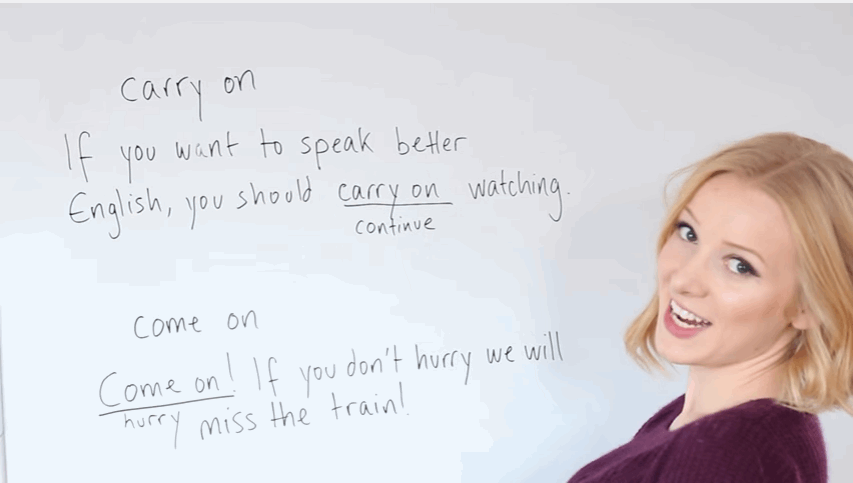 carry on
If you want to speak better
English, you should carry on watching.
continue
come on
Come on! If you don't hurry we will
hurry miss the train!